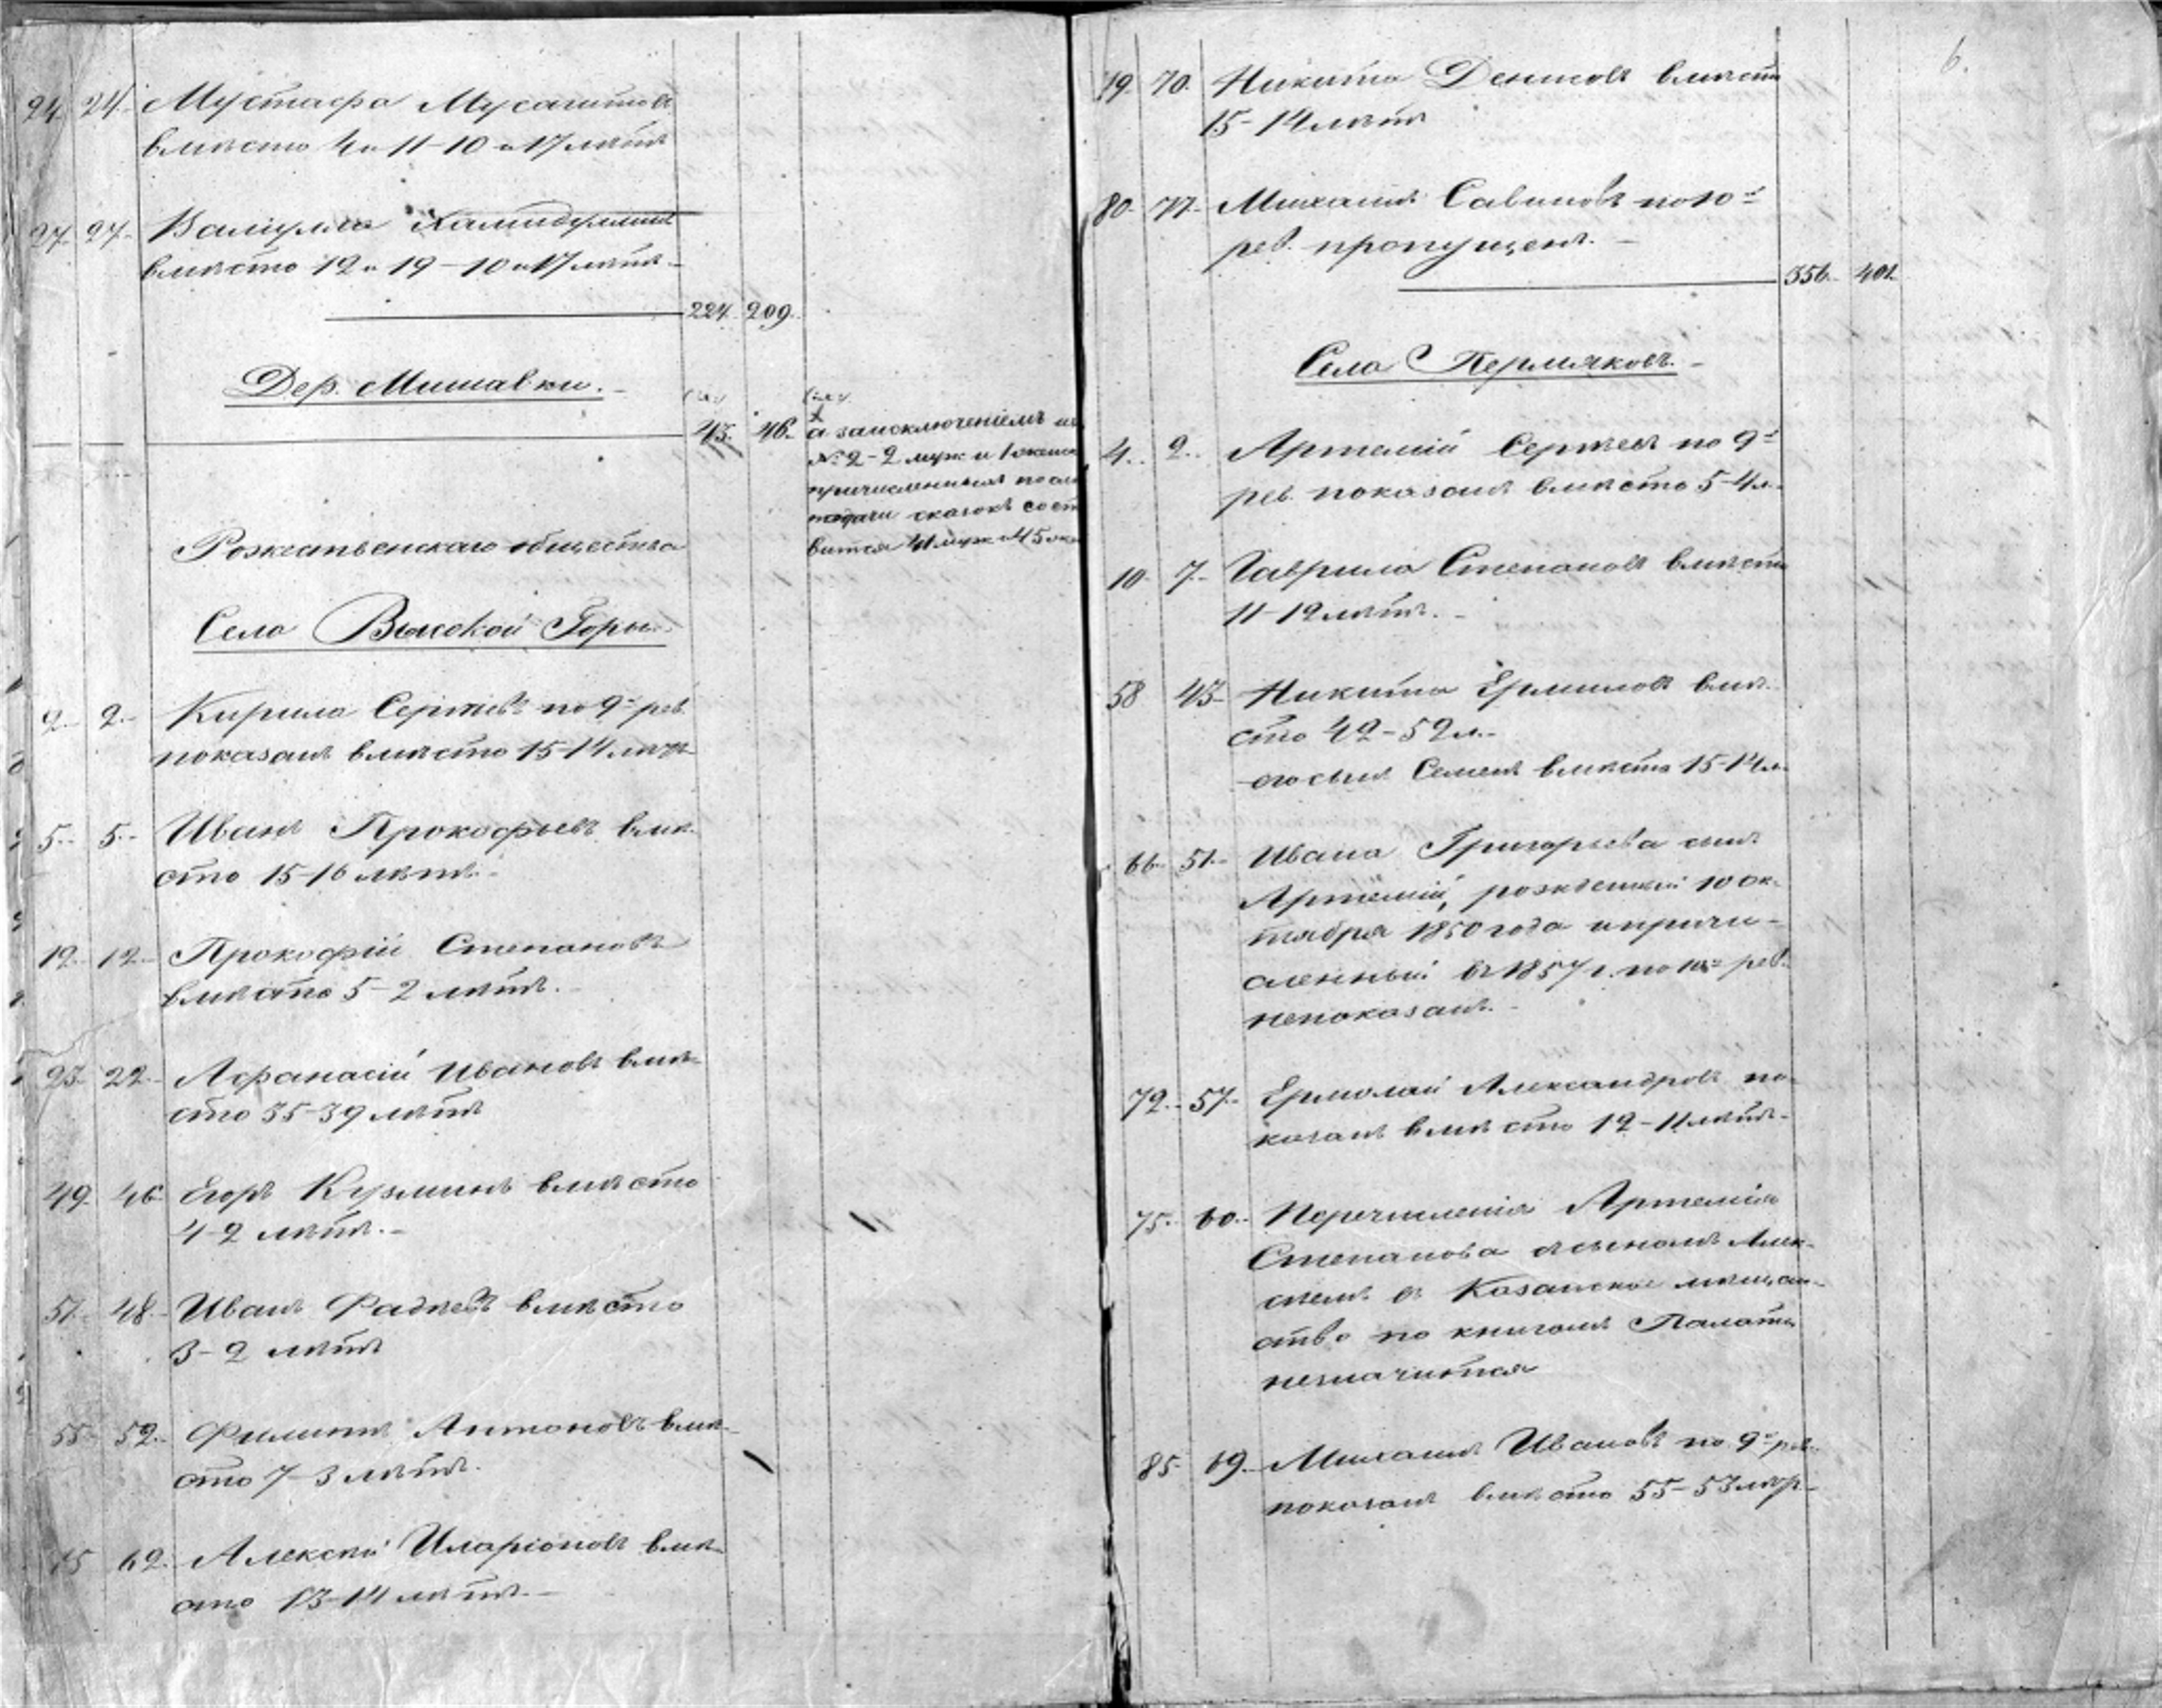 24. 24. Мустафа Мусагитовъ
вмѣсто 4 и 11-10 и 17 лѣтъ
27. 27. Валіулла Халитдуллинъ
вмѣсто 12 и 19-10 и 17 лѣтъ.
224. 209.
Дер. Мишавки.
43. 46. а заисключеніемъ
№ 2-2 муж. и 1 женска
причисленныхъ по
подачи сказокъ сост
вится 41 муж. и 45 жен
Рожественскаго общества
Село Высокой Горы.
2. 2. Кирило Сергѣевъ по 9й рев.
показанъ вмѣсто 15-14 лѣтъ
5. 5. Иванъ Прокофьевъ вмѣ-
сто 15-16 лѣтъ.
12. 12. Прокофій Степановъ
вмѣсто 5-2 лѣтъ.
23. 22. Афанасій Ивановъ вмѣ-
сто 35-39 лѣтъ
49. 46. Егоръ Кузминъ вмѣсто
4-2 лѣтъ.
51. 48. Иванъ Фадѣевъ вмѣсто
3-2 лѣтъ
55. 52. Филиппъ Антоновъ вмѣ-
сто 7-3 лѣтъ.
62. Алексѣй Иларіоновъ вмѣ-
сто 13-14 лѣтъ.
6.
79. 70. Никита Денисовъ вмѣсто
15-14 лѣтъ
80. 77. Михаилъ Савиновъ по 10й
рев. пропущенъ.
356. 401.
Села Пермяковъ.
4. 2. Артемій Сергѣевъ по 9й
рев. показанъ вмѣсто 5-4 л.
10. 7. Гаврила Степановъ вмѣсто
11-12 лѣтъ.
58 43. Никита Ермиловъ вмѣ-
сто 42-52 л.
его сынъ Семенъ вмѣсто 15-14 л.
66. 51. Ивана Григорьева сынъ
Артемій, рожденный 10 ок-
тября 1850 года и причи-
сленный въ 1857 г. по 10й рев.
непоказанъ.
72. 57. Ермолай Александровъ по-
казанъ вмѣсто 12-11 лѣтъ.
75. 60. Перечисленія Артемія
Степанова съ сыномъ Алек-
сѣемъ въ Казанское мѣщан-
ство по книгамъ Палаты
незначится
85. 69. Михаилъ Ивановъ по 9й рев.
показанъ вмѣсто 55-53 лѣт.